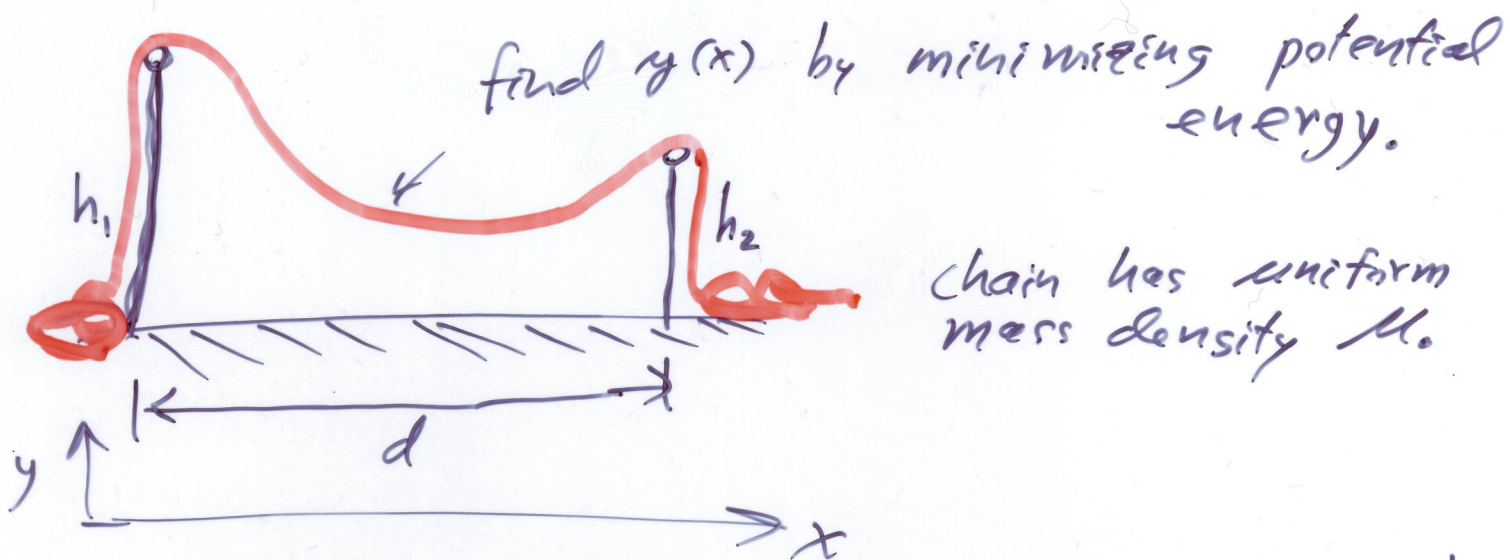 find y(x) by minimizing potential
energy.
h₁
h₂
chain has uniform
mass density μ.
d
y
x